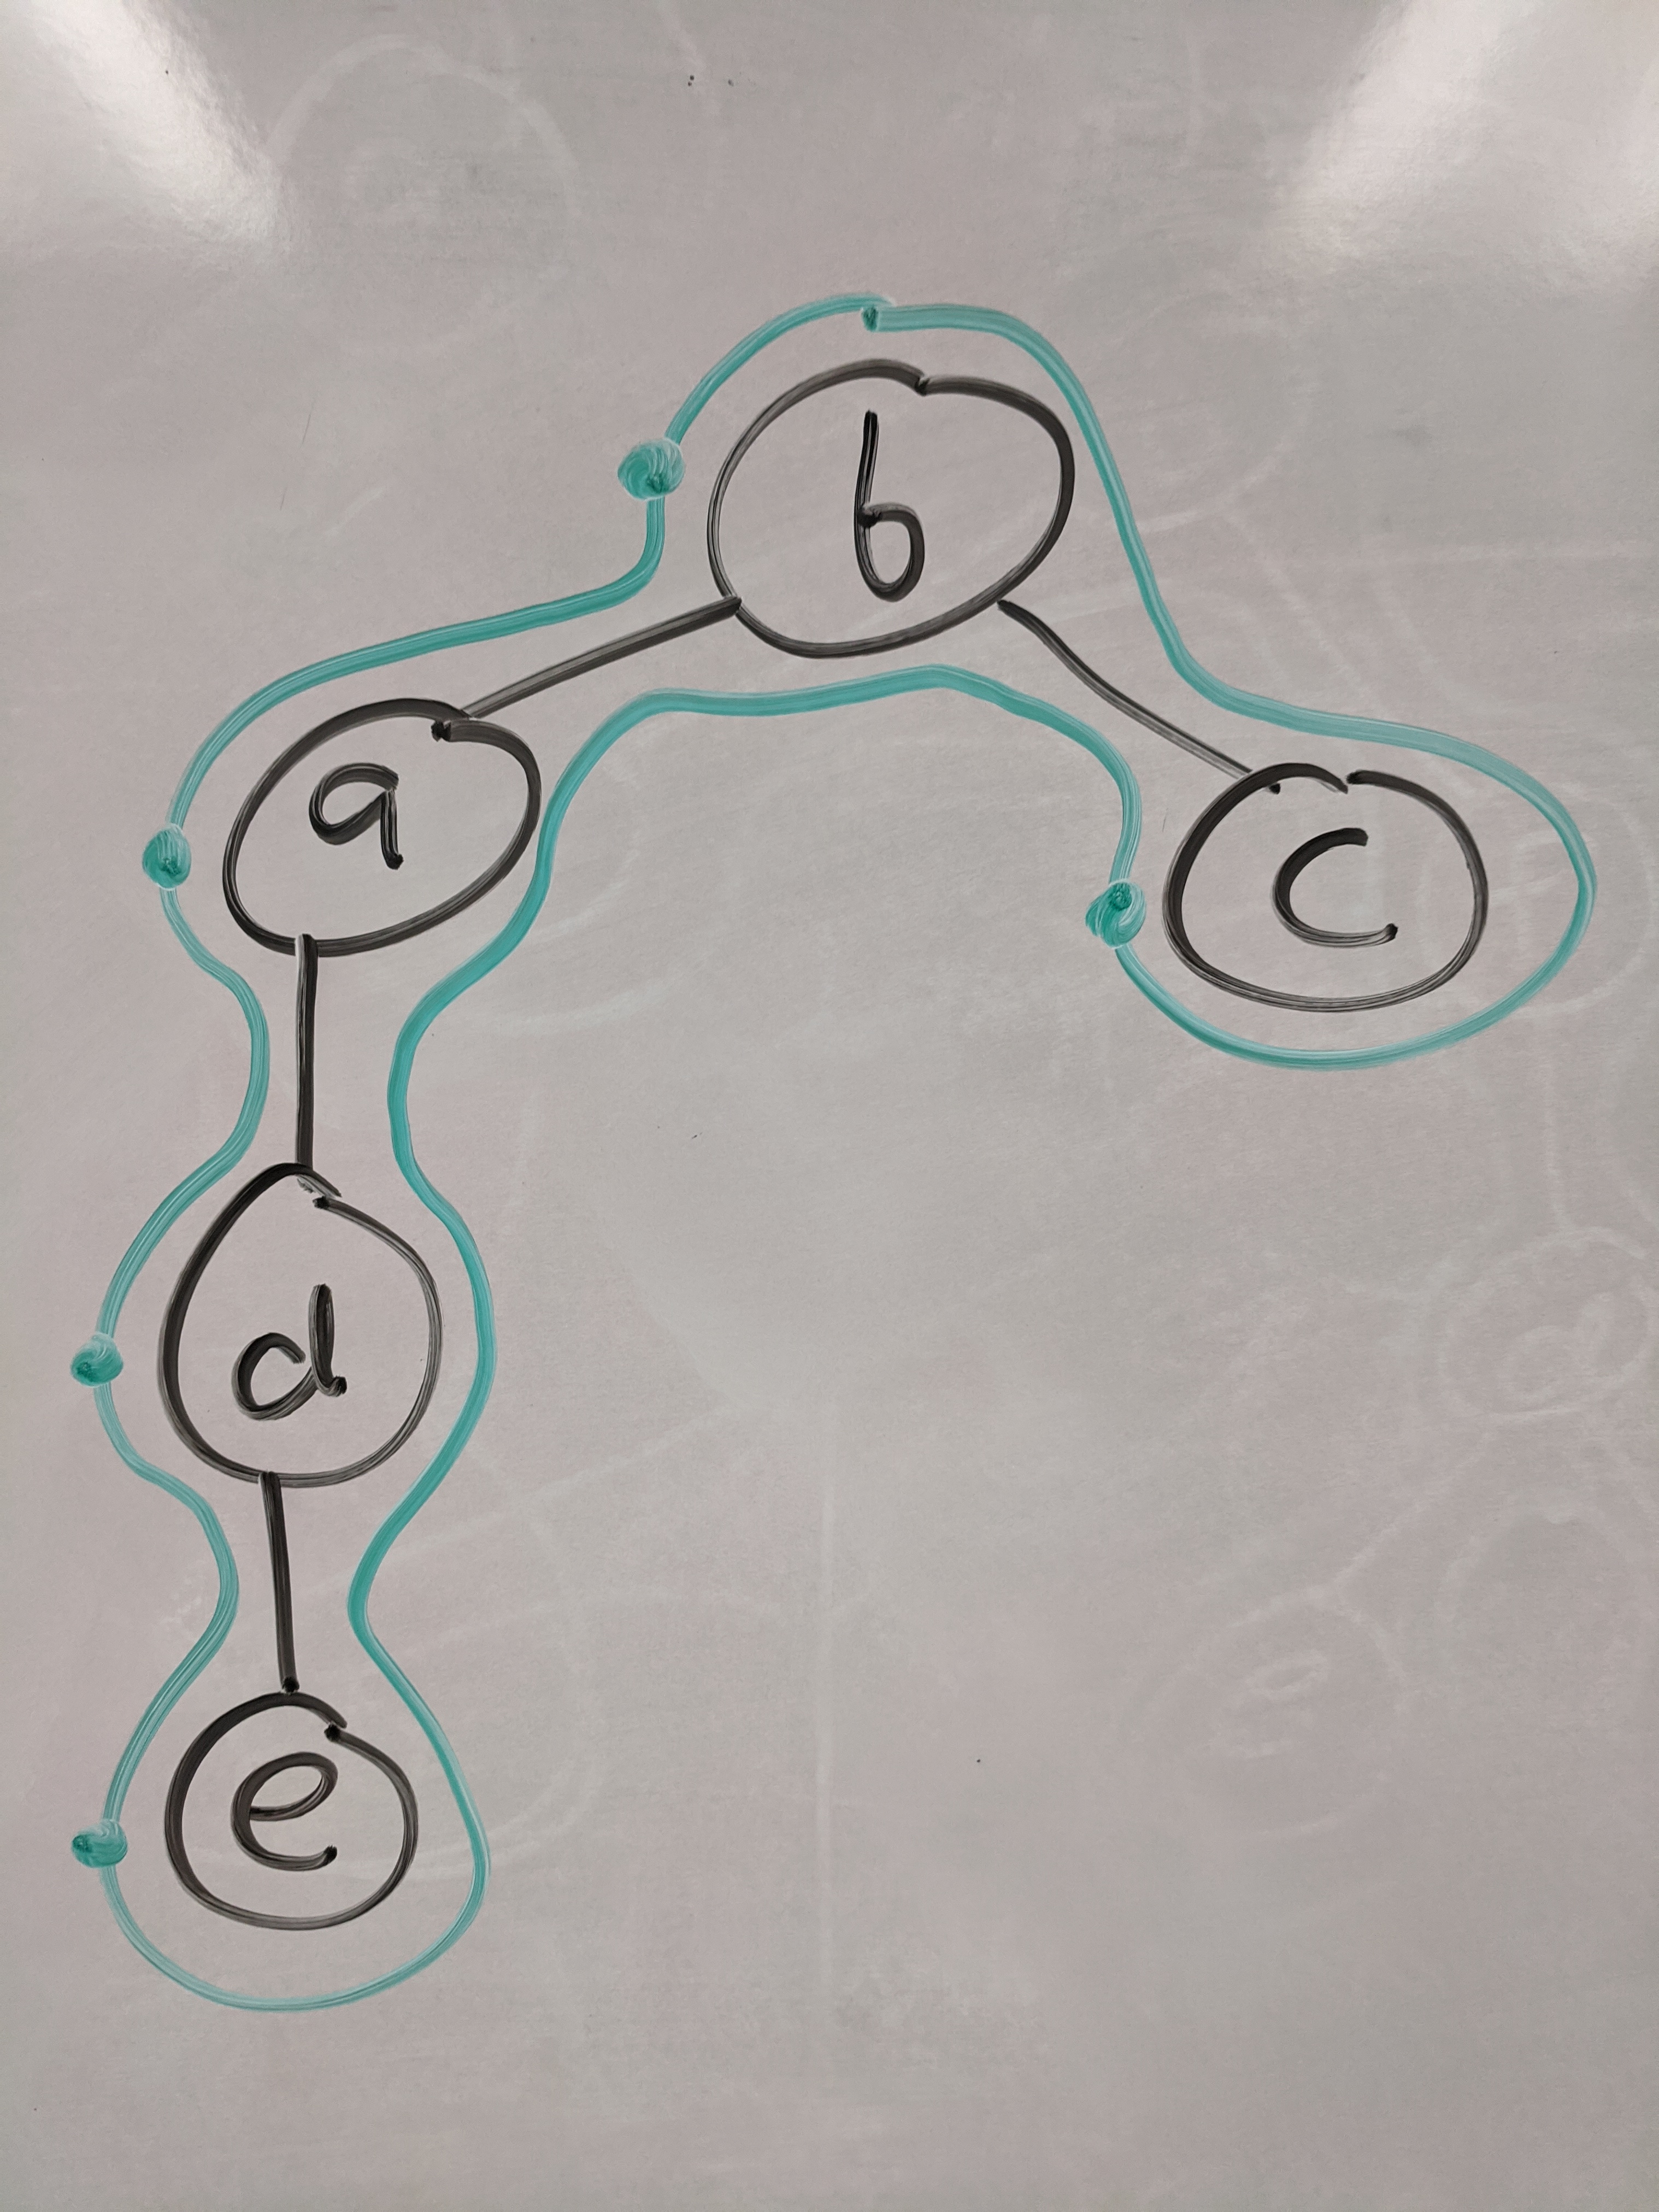 b
a
c
d
e